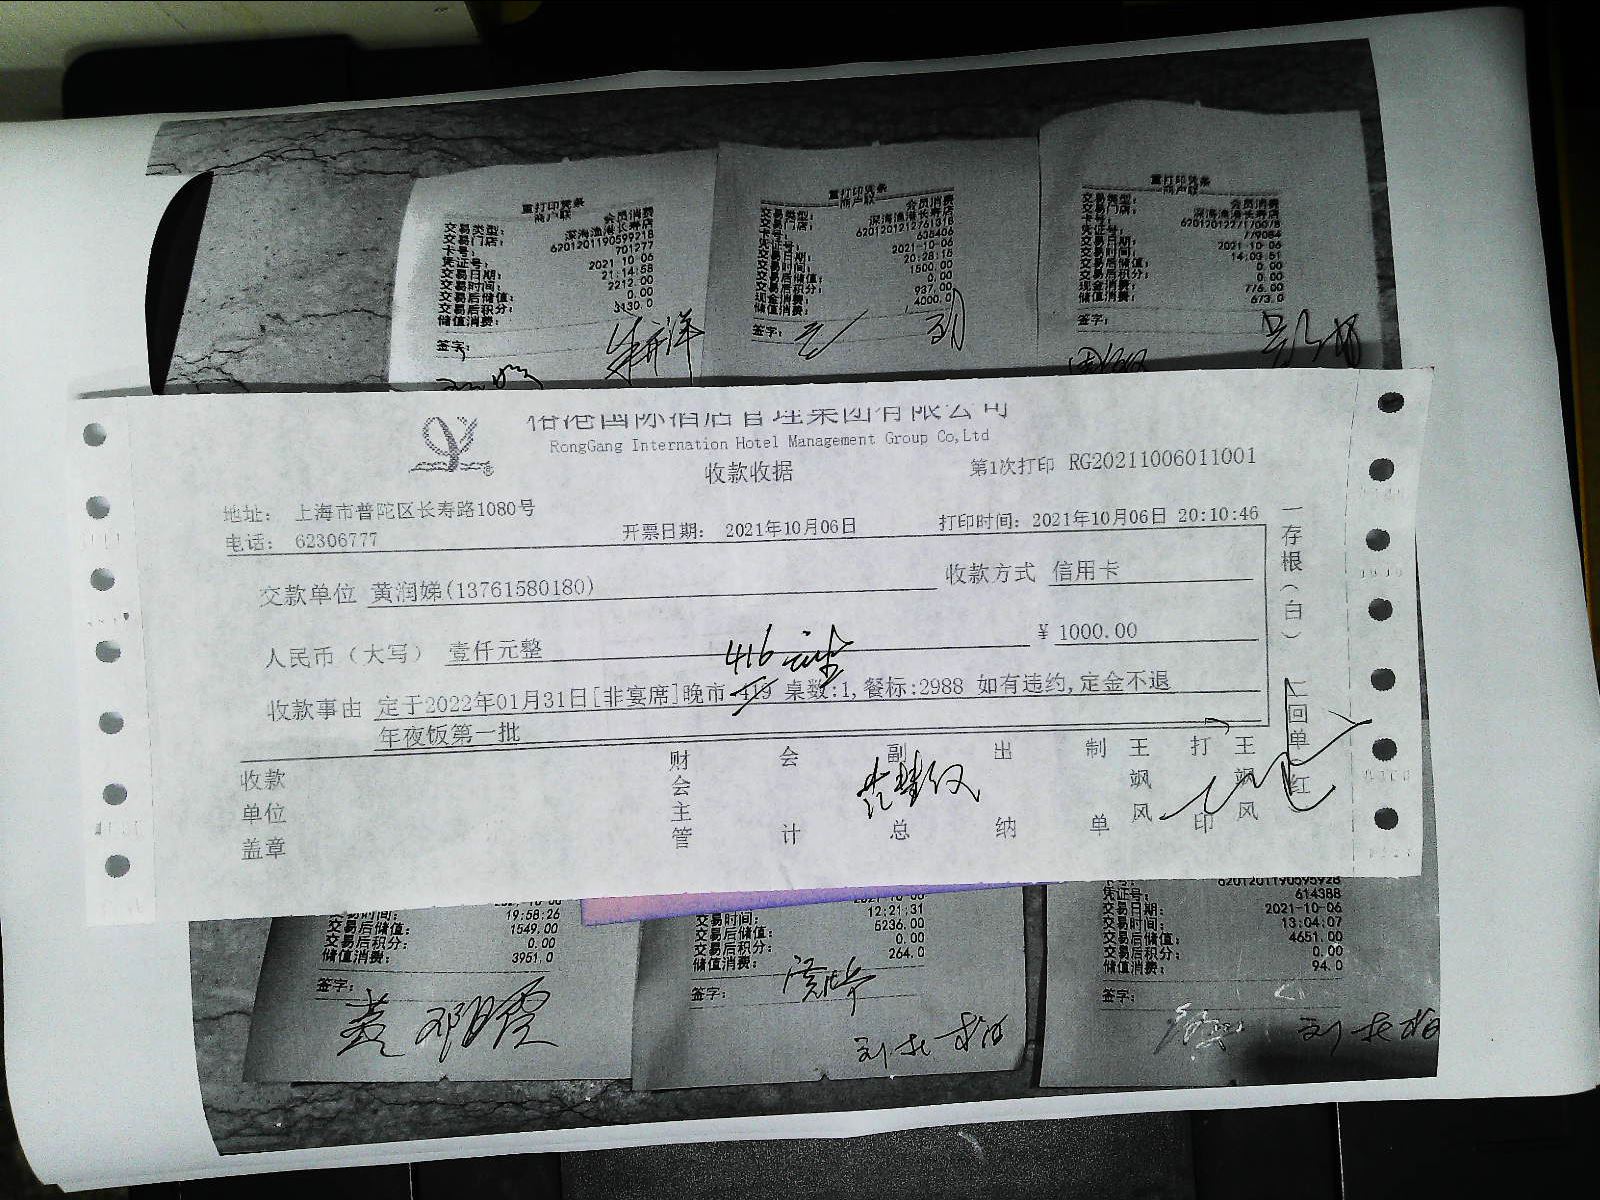 重打印凭条
商户联
交易类型： 会员消费
交易门店： 深海渔港长寿店
卡号： 6201201190599218
凭证号： 701277
交易日期： 2021-10-06
交易时间： 21:14:58
交易后储值： 2212.00
交易后积分： 0.00
储值消费： 3130.0
签字：
重打印凭条
商户联
交易类型： 会员消费
交易门店： 深海渔港长寿店
卡号： 6201201212761318
凭证号： 638406
交易日期： 2021-10-06
交易时间： 20:28:16
交易后储值： 1500.00
交易后积分： 0.00
现金消费： 937.00
储值消费： 4000.0
签字：
重打印凭条
商户联
交易类型： 会员消费
交易门店： 深海渔港长寿店
卡号： 6201201227170078
凭证号： 779084
交易日期： 2021-10-06
交易时间： 14:03:51
交易后储值： 0.00
交易后积分： 0.00
现金消费： 776.00
储值消费： 673.0
签字：
国际酒店管理集团有限公司
RongGang Internation Hotel Management Group Co,Ltd
收款收据 第1次打印 RG20211006011001
地址： 上海市普陀区长寿路1080号
电话： 62306777 开票日期： 2021年10月06日 打印时间：2021年10月06日 20:10:46
交款单位 黄润娣(13761580180) 收款方式 信用卡
人民币（大写） 壹仟元整 ¥ 1000.00
416
收款事由 定于2022年01月31日[非宴席]晚市 419 桌数:1,餐标:2988 如有违约,定金不退
年夜饭第一批
收款单位盖章 财会主管 会计 副总 出纳 制单 王飒风 打印 王飒风
一存根（白） 二回单（红
19:58:26
交易后储值： 1549.00
交易后积分： 0.00
储值消费： 3951.0
签字：
交易时间： 12:21:31
交易后储值： 5236.00
交易后积分： 0.00
储值消费： 264.0
签字：
卡号： 6201201190595928
凭证号： 614388
交易日期： 2021-10-06
交易时间： 13:04:07
交易后储值： 4651.00
交易后积分： 0.00
储值消费： 94.0
签字：